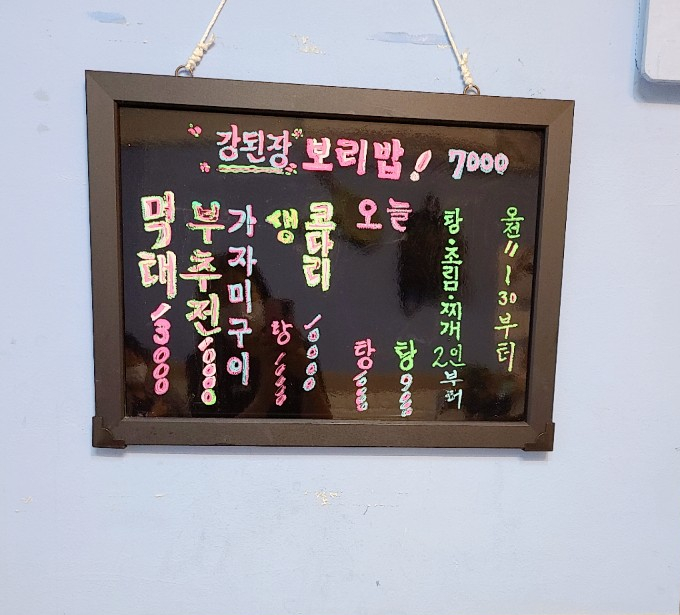 강된장 보리밥! 7000
오전 11 30부터
탕·조림·찌개 2인부터
오늘
탕 9000
탕
코다리 10000
생
탕
가자미구이
부추전 10000
먹태 13000